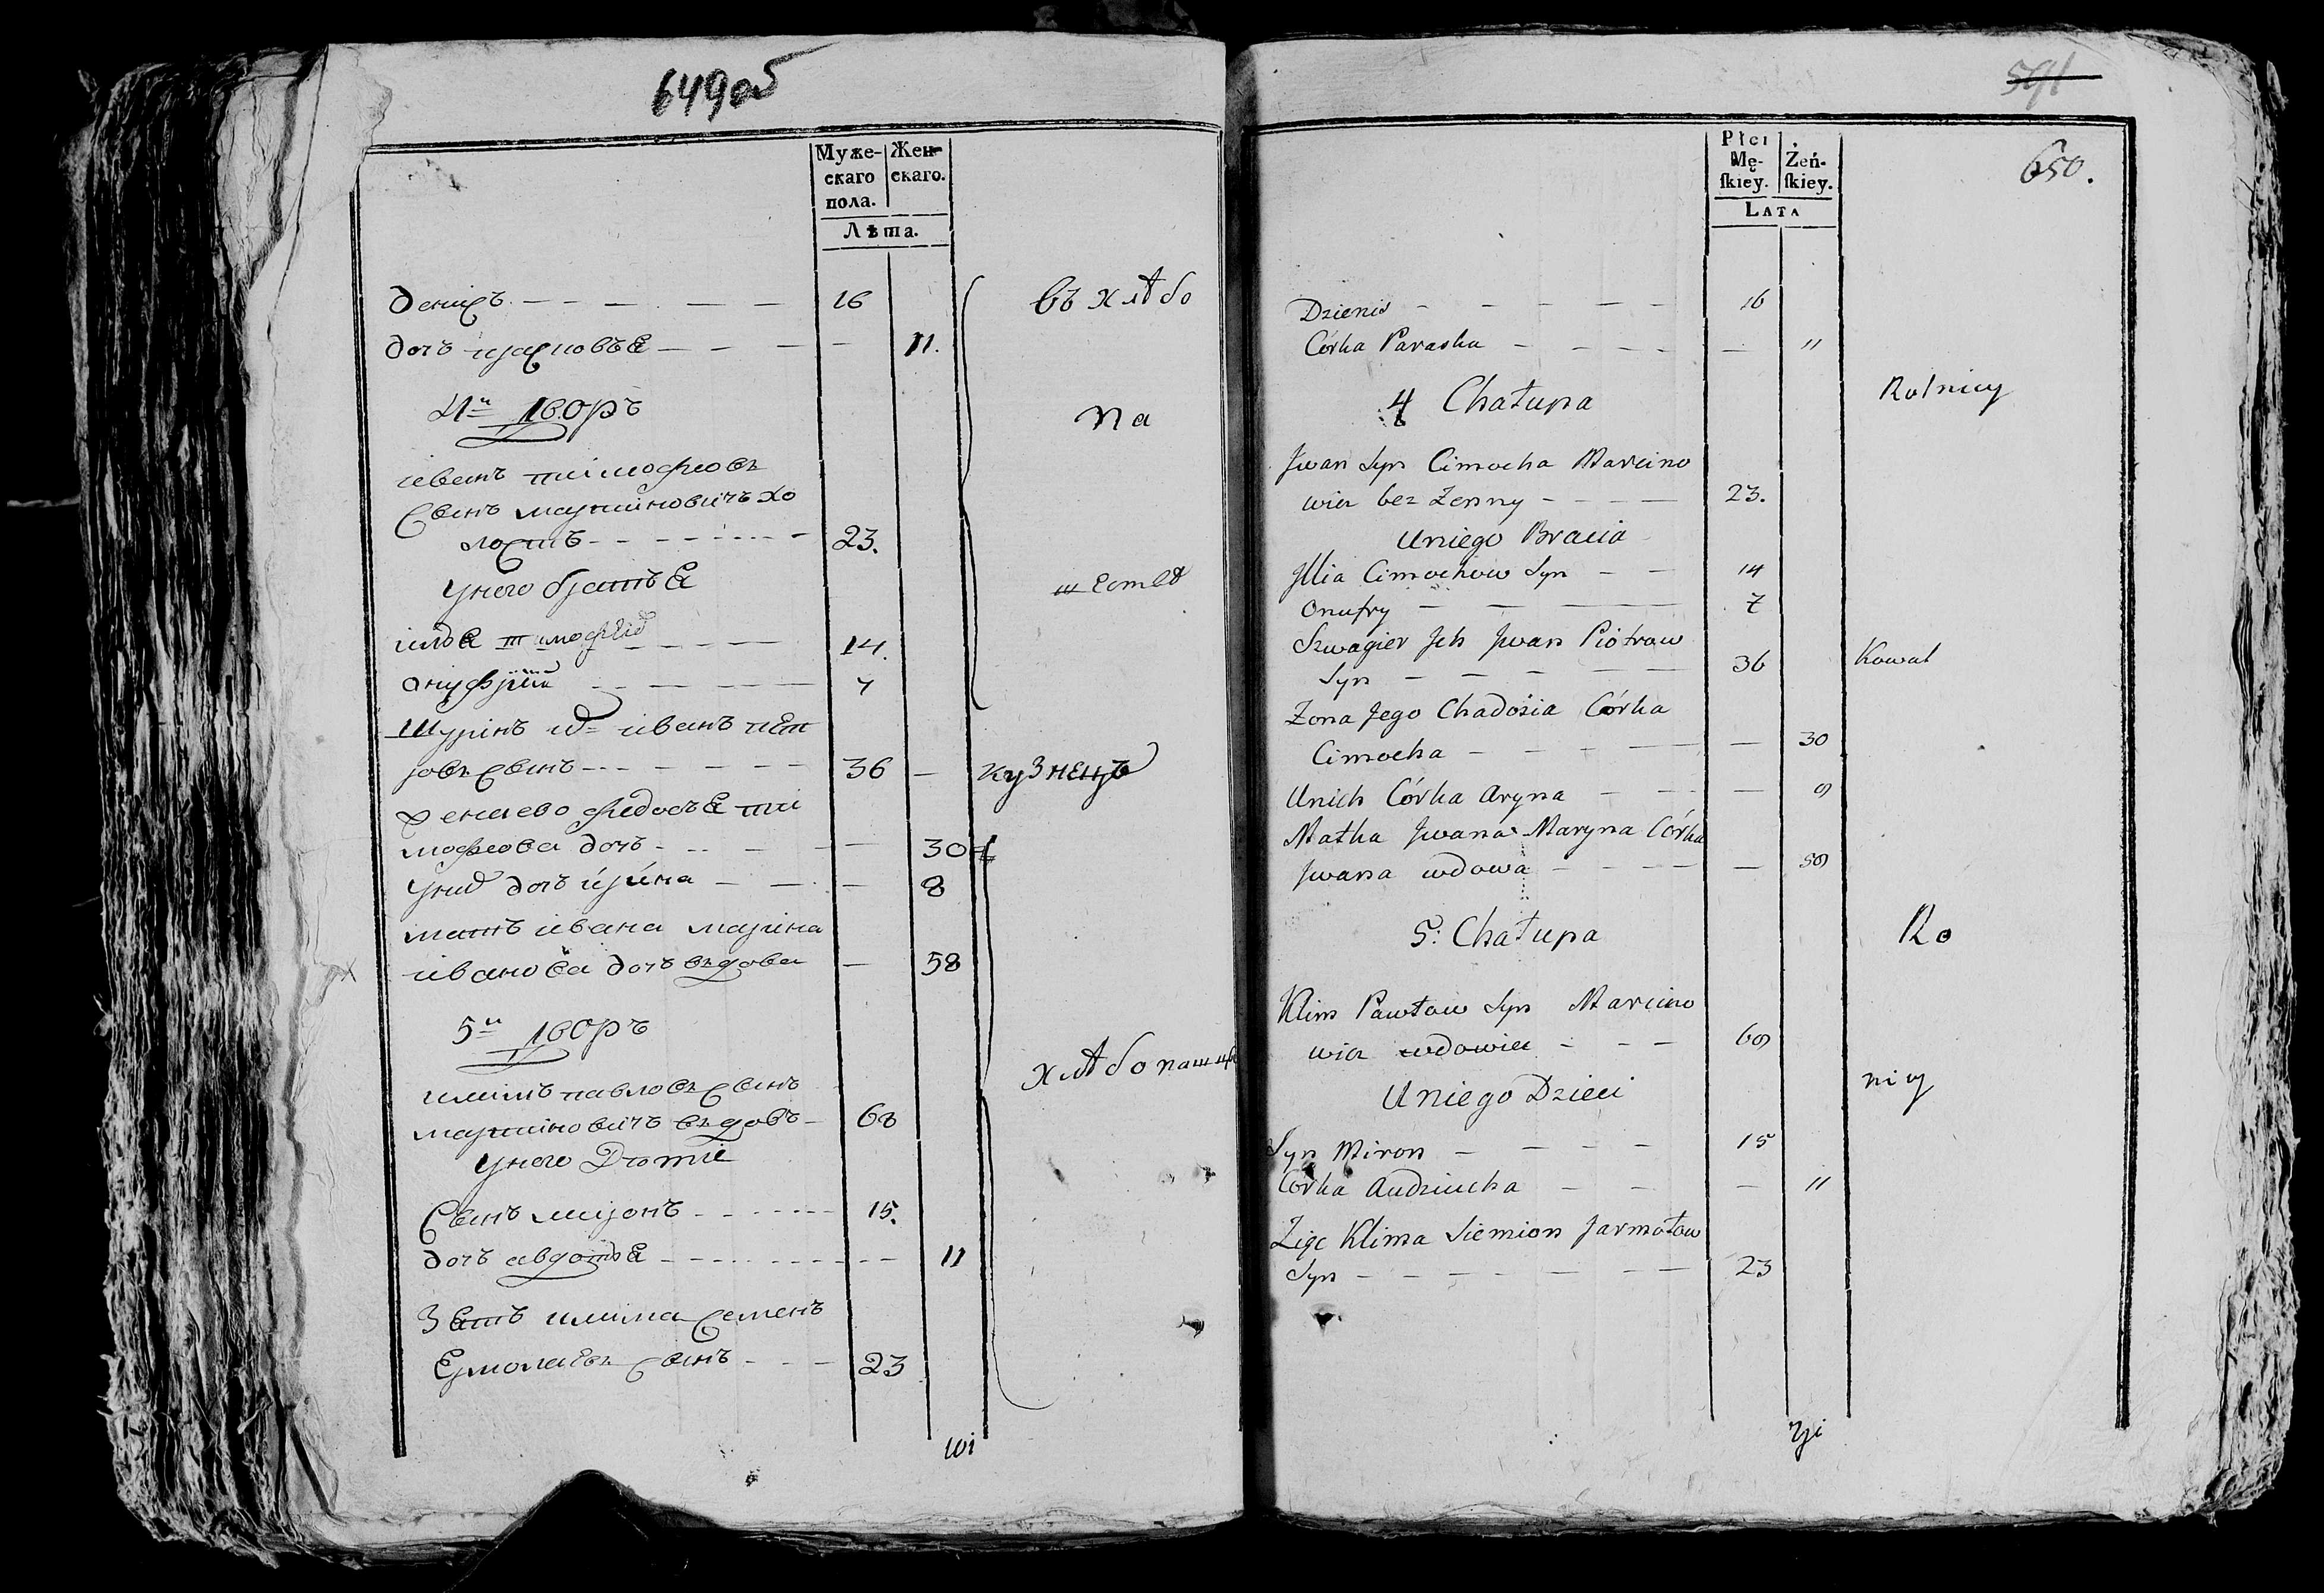 649 об
Муже-
скаго
пола.
Жен-
скаго.
Лѣта.
денисъ 16
дочь парасковья 11.
въ хлѣбо
4й дворъ
па
иванъ тимофеовъ
сынъ мартиновичъ хо
лостъ 23.
У него братья
шеств
илья тимофеев 14.
онуфрий 7
Шуринъ их иванъ пет
ровъ сынъ 36
кузнецъ
жена ево федосья ти
мофеова дочь 30
У них дочь ирина 8
мать ивана марина
иванова дочь вдова 58
5й дворъ
климъ павловъ сынъ
хлѣбопашцы
мартиновичъ вдовъ 68
У него Дѣти
Сынъ миронъ 15.
дочь авдотья 11
Зять клима семенъ
Ермолаевъ сынъ 23
wi
541
650.
Płci
Mę-
ſkiey.
Żeń-
ſkiey.
Lata
Dzienis 16
Córka Paraska 11
4 Chałupa
Rolnicy
Jwan Syn Cimocha Marcino
wicz bez Zenny 23.
Uniego Bracia
Jllia Cimochow Syn 14
Onufry 7
Szwagier Jch Jwan Piotrow
Syn 36
Kowal
Zona Jego Chadośia Córka
Cimocha 30
Unich Córka Aryna 9
Matka Jwana Maryna Córka
Jwana wdowa 59
5: Chałupa
Ro
Klim Pawłow Syn Marcino
wicz wdowiec 69
Uniego Dzieci
nicy
Syn Miron 15
Córka Audziucha 11
Zięc Klima Siemion Jarmołow
Syn 23